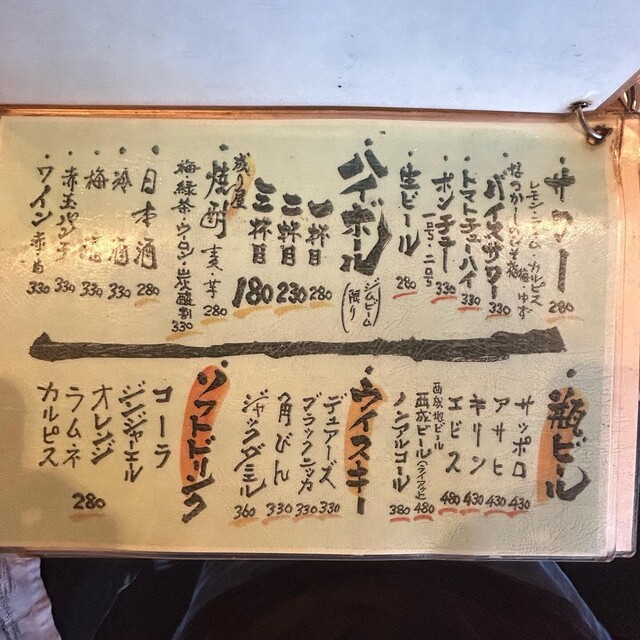 サワー
レモン・ライム・カルピス
梅・ゆず
280
なつかしのしそ梅
バイスサワー 330
トマトチューハイ 330
ポンチュー 330
一号・二号
生ビール 280
ハイボール
(ジムビーム限り)
一杯目 280
二杯目 230
三杯目 180
焼酎 麦・芋 280
梅・緑茶・ウーロン・炭酸割 330
日本酒 280
冷酒 330
梅酒 330
赤玉パンチ 330
ワイン 赤・白 330
瓶ビール
サッポロ 430
アサヒ 430
キリン 430
エビス 480
西成地ビール
西成ビール(ライブッヒ) 480
ノンアルコール 380
ウイスキー
デュアーズ 330
ブラックニッカ 330
角びん 330
ジャックダニエル 360
ソフトドリンク
コーラ
ジンジャエール
オレンジ
ラムネ
カルピス
280